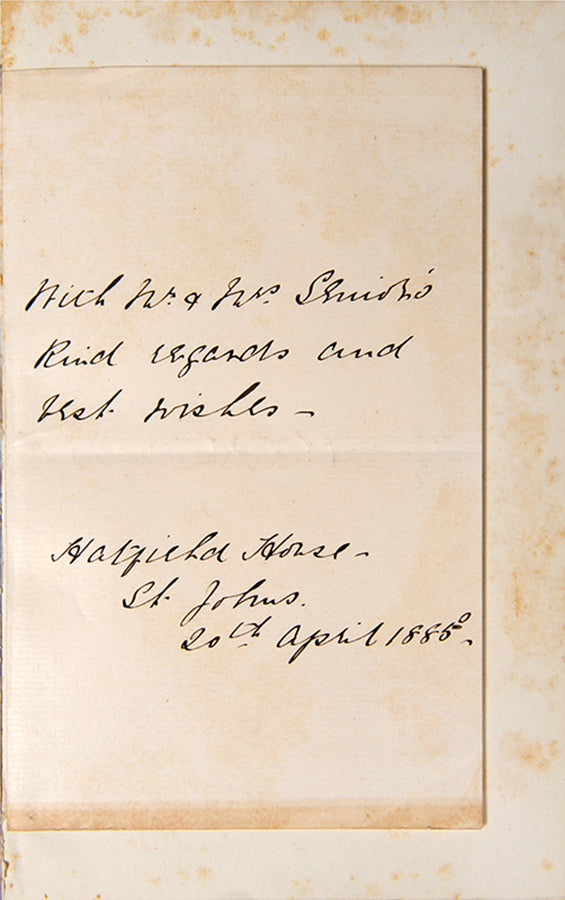 With Mr. & Mrs. Senior's
kind regards and
best wishes –
Hatfield House –
St. Johns.
20th April 1885 –